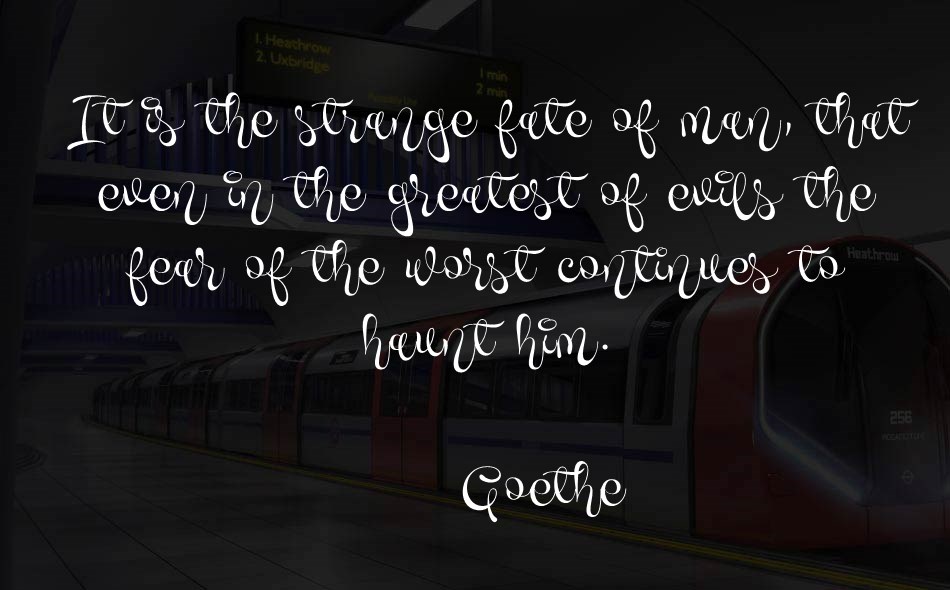 1. Heathrow
2. Uxbridge
1 min
2 min
Piccadilly Line
It is the strange fate of man, that
even in the greatest of evils the
fear of the worst continues to
haunt him.
Heathrow
256
Goethe